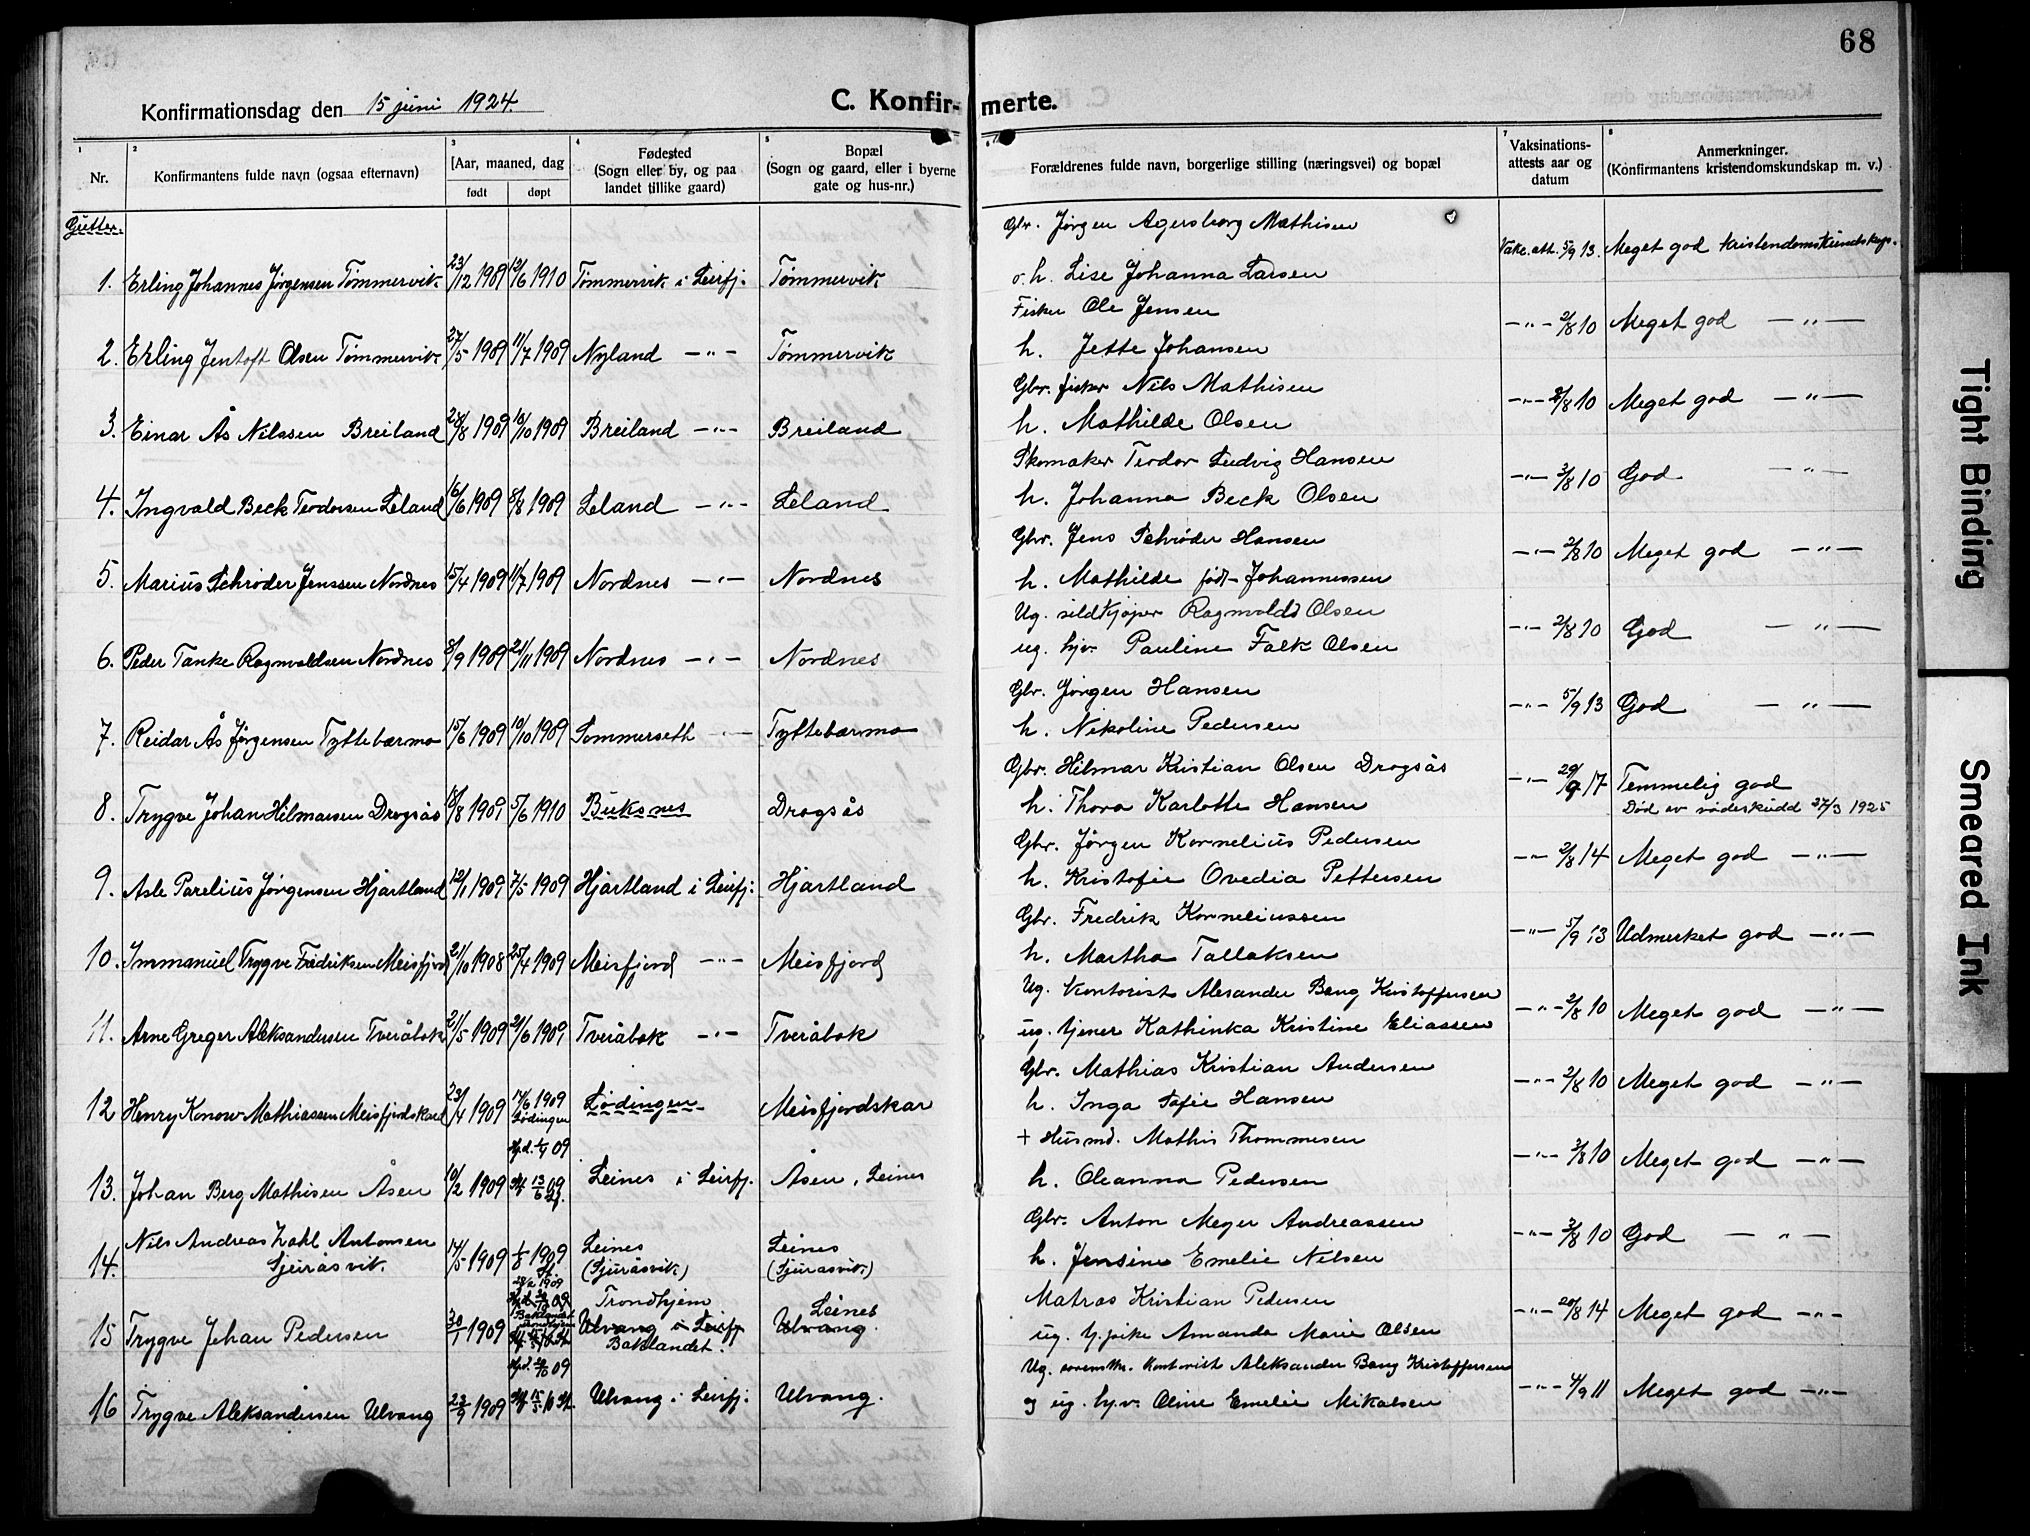 68
Konfirmationsdag den 15 juni 1924.
C. Konfirmerte.
1 Nr.
2 Konfirmantens fulde navn (ogsaa efternavn)
3 [Aar, maaned, dag
født døpt
4 Fødested
(Sogn eller by, og paa
landet tillike gaard)
5 Bopæl
(Sogn og gaard, eller i byerne
gate og hus-nr.)
6 Forældrenes fulde navn, borgerlige stilling (næringsvei) og bopæl
7 Vaksinations-
attests aar og
datum
8 Anmerkninger.
(Konfirmantens kristendomskundskap m. v.)
Gutter.
Gbr. Jørgen Agersborg Mathisen
1. Erling Johannes Jørgensen Tømmervik 23/12 1909 12/6 1910 Tømmervik i Leirfj: Tømmervik o. h. Lise Johanna Larsen Vakc. att. 5/9 13. Meget god kristendomskundskap.
Fisker Ole Jensen
2. Erling Jentoft Olsen Tømmervik 27/5 1909 11/7 1909 Nyland -"- Tømmervik h. Jette Johansen -"- 2/8 10 Meget god -"-
Gbr. fisker Nils Mathisen
3. Einar Ås Nilssen Breiland 28/8 1909 10/10 1909 Breiland -"- Breiland h. Mathilde Olsen -"- 2/8 10 Meget god -"-
Skomaker Teodor Ludvig Hansen
4. Ingvald Beck Teodorsen Leland 16/6 1909 8/8 1909 Leland -"- Leland h. Johanna Beck Olsen -"- 3/8 10 God -"-
Gbr. Jens Schrøder Hansen
5. Marius Schrøder Jenssen Nordnes 15/4 1909 11/7 1909 Nordnes -"- Nordnes h. Mathilde født Johannessen -"- 2/8 10 Meget god -"-
Ug. sildkjøper Ragnvald Olsen
6. Peder Tanke Ragnvaldsen Nordnes 8/9 1909 21/11 1909 Nordnes -"- Nordnes ug. hjv. Pauline Falk Olsen -"- 2/8 10 God -"-
Gbr. Jørgen Hansen
7. Reidar Ås Jørgensen Tyttebærmo 15/6 1909 10/10 1909 Sommerseth -"- Tyttebærmo h. Nikoline Pedersen -"- 5/9 13 God -"-
Gbr. Hilmar Kristian Olsen Drogsås
8. Trygve Johan Hilmarsen Drogsås 18/8 1909 5/6 1910 Buksnes Drogsås h. Thora Karlotte Hansen -"- 29/9 17 Temmelig god
Død av vådeskudd 27/3 1925
Gbr. Jørgen Kornelius Pedersen
9. Asle Parelius Jørgensen Hjartland 12/1 1909 7/5 1909 Hjartland i Leirfj: Hjartland h. Kristofie Ovedia Pettersen -"- 2/8 14 Meget god -"-
Gbr. Fredrik Korneliussen
10. Immanuel Trygve Fredriksen Meisfjord 21/10 1908 25/4 1909 Meisfjord -"- Meisfjord h. Martha Tallaksen -"- 5/9 13 Udmerket god -"-
Ug. kontorist Alexander Bang Kristoffersen
11. Arne Greger Aleksandersen Tveråbak 21/5 1909 21/6 1909 Tveråbak -"- Tveråbak ug. tjener Kathinka Kristine Eliassen -"- 2/8 10 Meget god -"-
Gbr. Mathias Kristian Andersen
12 Henry Konow Mathiassen Meisfjordskard 23/4 1909 17/6 1909 Lødingen Lødingen Meisfjordskar h. Inga Sofie Hansen -"- 2/8 10 Meget god -"-
+ Husmd. Mathis Thommesen
13. Johan Berg Mathisen Åsen 10/2 1909 13/6 09 Leines i Leirfj. Åsen, Leines h. Oleanna Pedersen -"- 3/8 10 Meget god -"-
Gbr. Anton Meyer Andreassen
14. Nils Andreas Zahl Antonsen
Sjuråsvik. 14/5 1909 1/8 1909 Leines
(Sjuråsvik) Leines
(Sjuråsvik) h. Jensine Emelie Nilsen -"- 3/8 10 God -"-
Matros Kristian Pedersen
15 Trygve Johan Pedersen 30/1 1909 Trondhjem
Ulvang i Leirfj
Baklandet. Leines
Ulvang. ug. tj. pike Amanda Marie Olsen -"- 20/8 14 Meget god -"-
Ug. kontorist Aleksander Bang Kristoffersen
16 Trygve Aleksandersen Ulvang 23/9 1909 Ulvang i Leirfj: Ulvang. og ug. hj.v. Oline Emelie Mikalsen -"- 4/9 11 Meget god -"-
Tight Binding
Smeared Ink